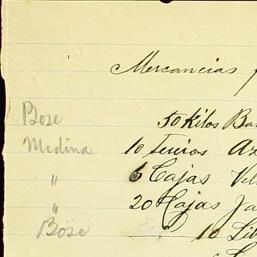 Mercancias
Bose 50 Kilos Ba
Medina 10
" 6 Cajas Vel
" 20 Cajas Ja
Böse 10 Li